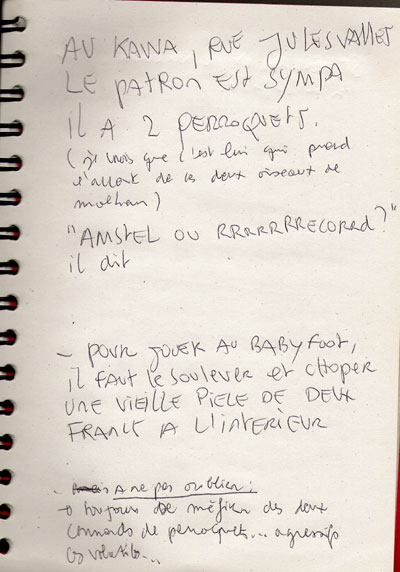 AU KAWA, RUE JULES VALLES
LE PATRON EST SYMPA
il A 2 PERROQUETS.
(je crois que c'est lui qui prend
l'accent de ces deux oiseaux de
malheur)
"AMSTEL OU RRRRRRRECORRD?"
il dit
- POUR JOUER AU BABYfOOT,
il FAUT le SOULEVER et CHOPER
UNE VIEILLE PIECE DE DEUX
FRANCS A L'INTERIEUR
A ne pas oublier:
toujours se méfier des deux
connards de perroquets... agressifs
ces volatiles...